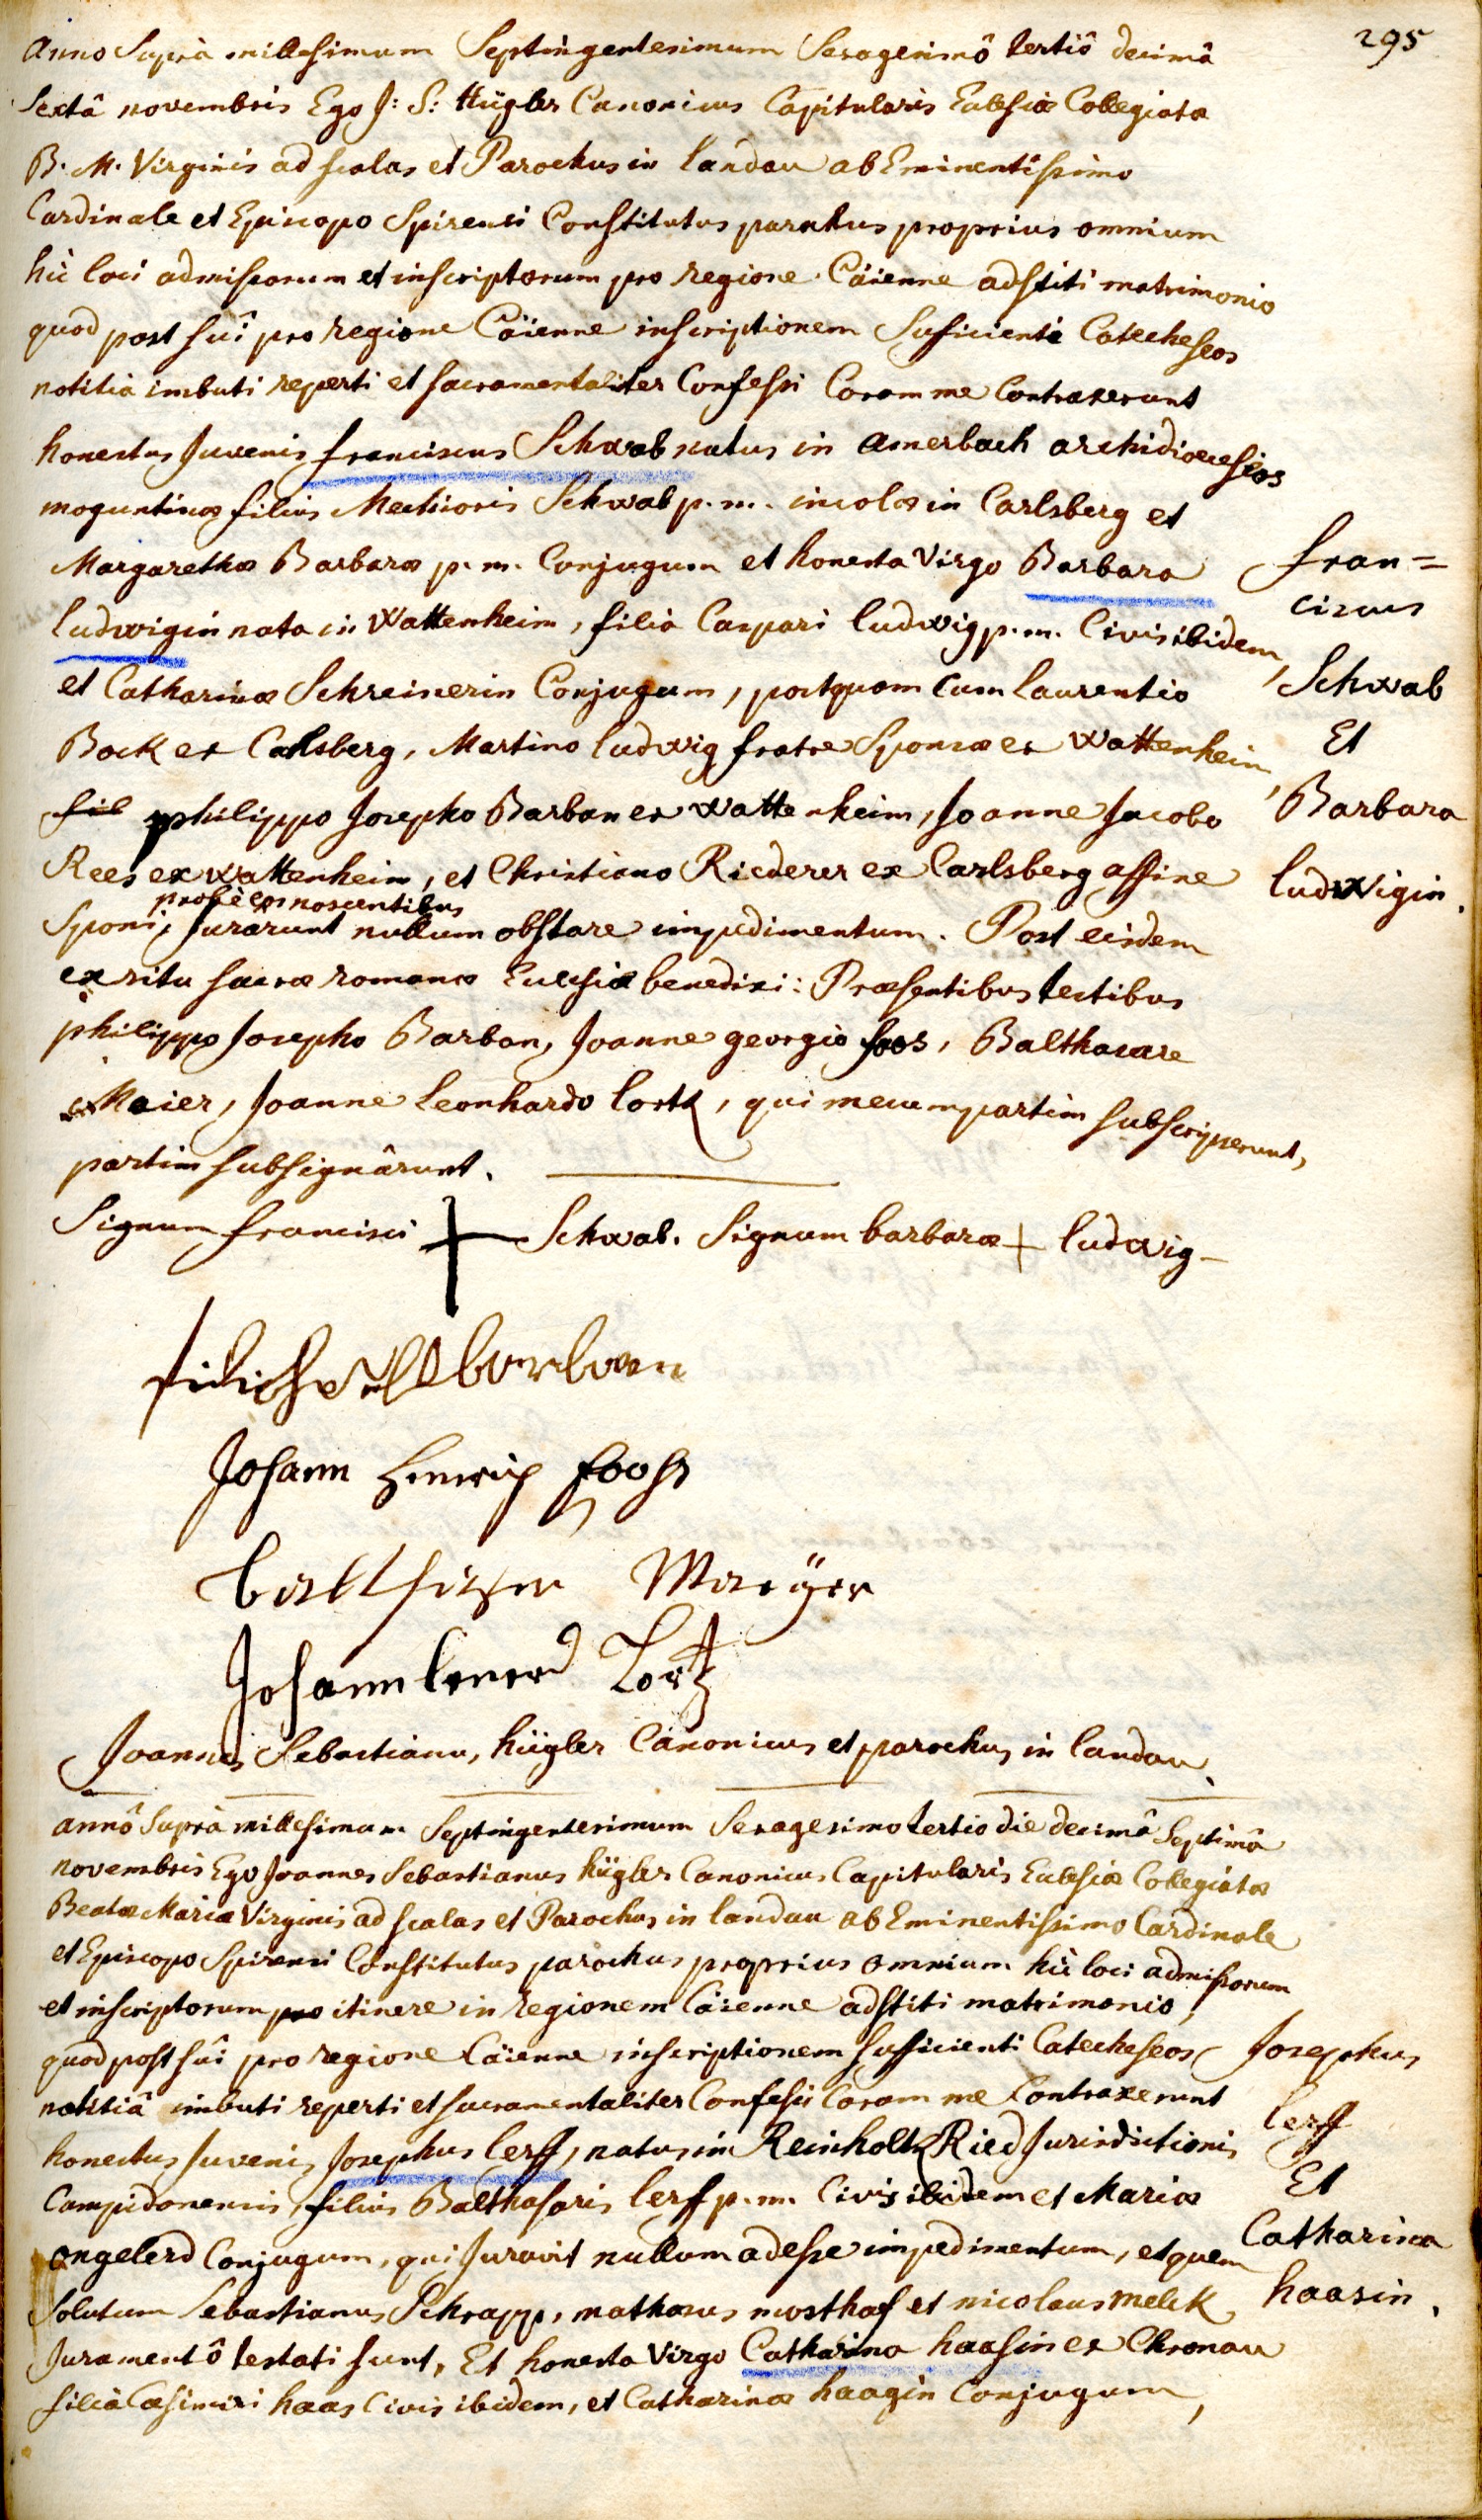 295
Anno Suprà millesimum Septingentesimum Sexagesimô tertiô decimâ
Sextâ novembris Ego J: S: Hügler Canonicus Capitularis Eclesiæ Collegiatæ
B. M. Virginis ad scalas et Parochus in landau ab Eminentissimo
Cardinale et Episcopo Spirensi Constitutus parochus proprius omnium
hìc loci admissorum et inscriptorum pro regione Cäienne adstiti matrimonio
quod post suî pro regione Cäienne inscriptionem Sufficienti Catecheseos
notitia imbuti reperti et sacramentaliter Confessi Coram me Contraxerunt
honestus Juvenis franciscus Schwab natus in amerbach archidioeceseos
moguntinæ filius Mechioris Schwab p. m. incolæ in Carlsberg et
Margarethæ Barbaræ p. m. Conjugum et honesta Virgo Barbara
ludwigin nata in Wattenheim, filia Caspari ludwig p. m. Civis ibidem,
et Catharinæ Schreinerin Conjugum, postquam cum laurentio
Bock ex Carlsberg, Martino ludwig fratre Sponsæ ex Wattenheim,
fil philippo Josepho Barban ex wattenheim, Joanne Jacobo
Rees ex wattenheim, et Christiano Riederer ex Carlsberg affine
probè eos noscentibus
Sponsi, Jurarunt nullum obstare impedimentum. Post eisdem
ex ritu sacræ romanæ Eclesiæ benedixi: Præsentibus testibus
philippo Josepho Barban, Joanne georgio foos, Balthasare
Maier, Joanne Leonhardo lortz, qui mecum partim subscripserunt,
partim subsignârunt.
Signum francisci + Schwab. Signum barbaræ + ludwig
fran=
ciscus
Schwab
Et
Barbara
ludwigin.
barban
Johann Henrich foohs
balthaser Maeÿer
Johann lenerd Lortz
Joannes Sebastianus hügler Canonicus et parochus in landau.
annô Suprà millesimum Septingentesimum Sexagesimo tertio die decimâ Septimâ
novembris Ego Joannes Sebastianus hügler Canonicus Capitularis Eclesiæ Collegiatæ
Beatæ Mariæ Virginis ad scalas et Parochus in landau ab Eminentissimo Cardinale
et Episcopo Spirensi Constitutus parochus proprius omnium hìc loci admissorum
et inscriptorum pro itinere in regionem Cäienne adstiti matrimonio,
quod post suî pro regione Cäienne inscriptionem sufficienti Catecheseos
notitiâ imbuti reperti et sacramentaliter Confessi Coram me Contraxerunt
honestus Juvenis Josephus lerff, natus in Reinholtz Ried Jurisdictionis
Campidonensis, filius Balthasaris lerf p. m. Civis ibidem et Mariæ
angelerd Conjugum, qui Juravit nullum adesse impedimentum, et quem
Solutum Sebastianus Schrapp, mathæus mosthaf et nicolaus melck
Juramentô testati sunt, Et honesta Virgo Catharina haasin ex Chronau
filia Casimiri haas Civis ibidem, et Catharinæ haagin Conjugum,
Josephus
lerff
Et
Catharina
haasin.